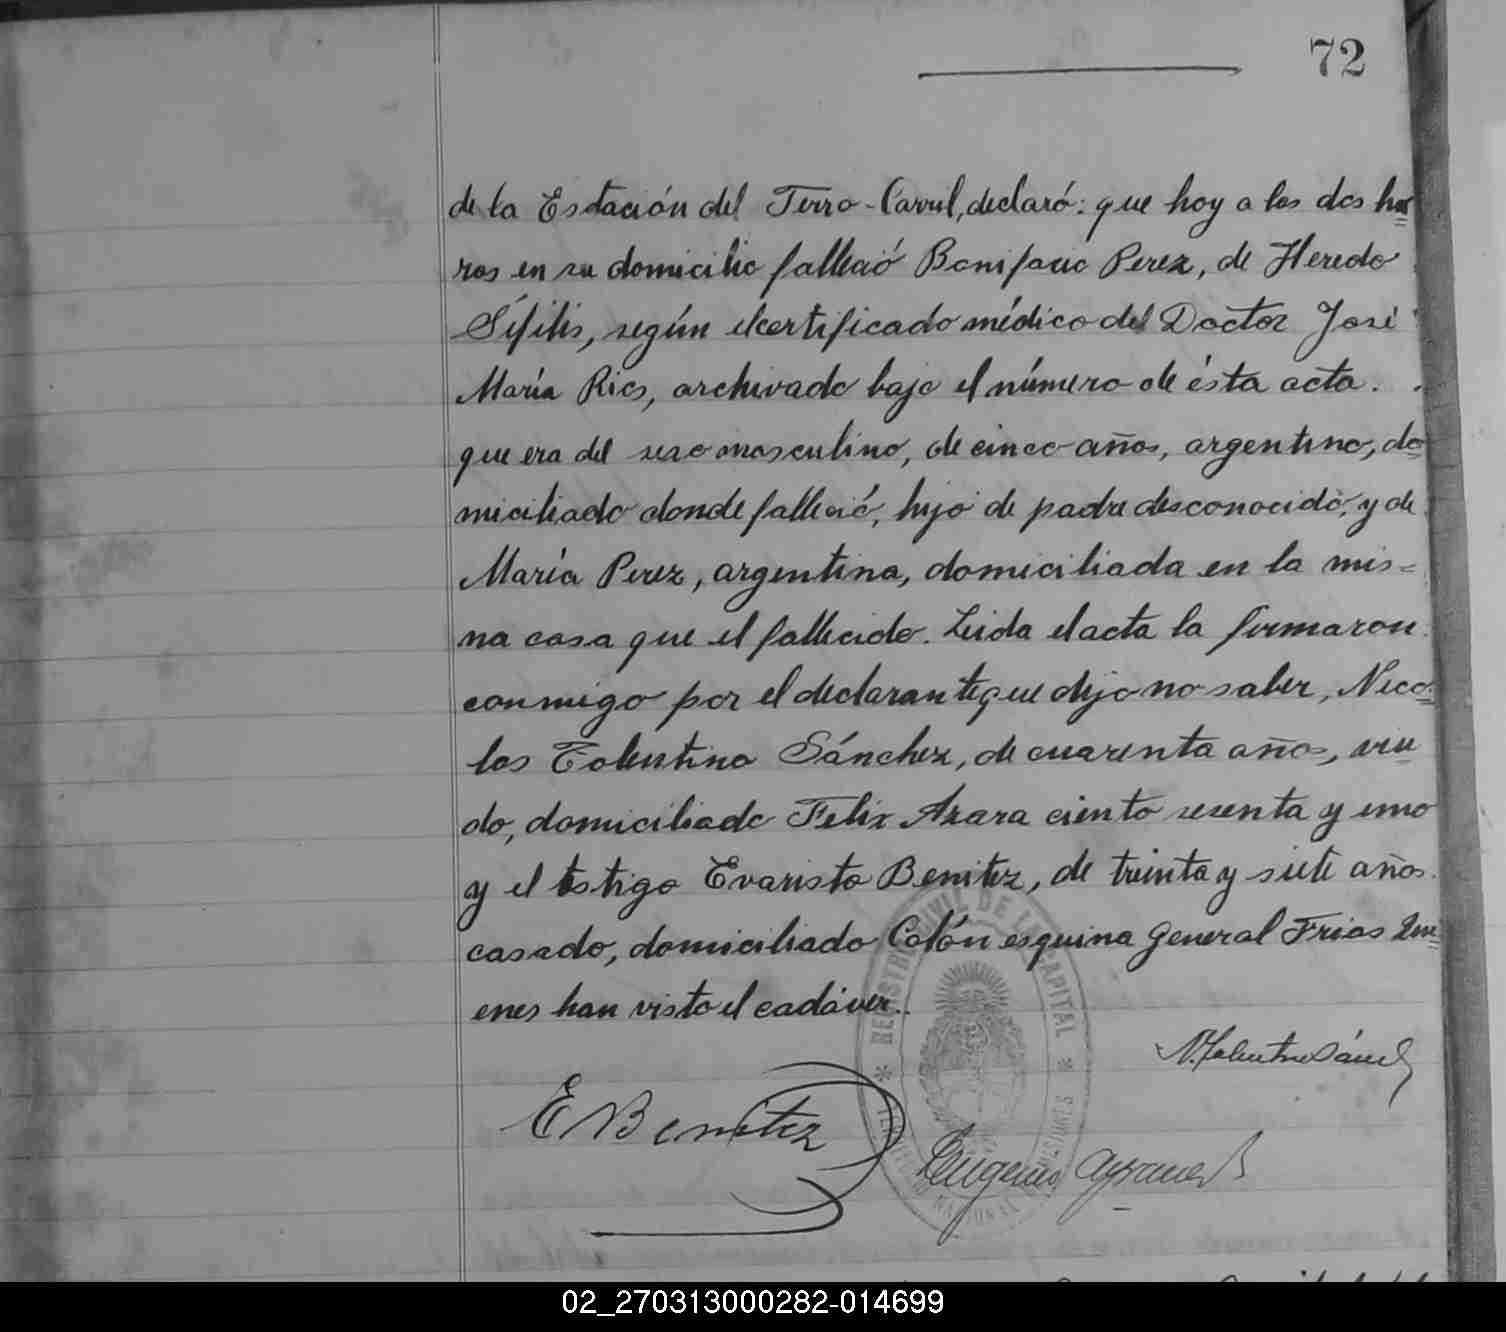 72
de la Estación del Ferro-Carril, declaró: que hoy a las dos ho=
ras en su domicilio falleció Bonifacio Perez, de Heredo
Sífilis, según el certificado médico del Doctor José
María Rios, archivado bajo el número de ésta acta.
que era del sexo masculino, de cinco años, argentino, do=
miciliado donde falleció, hijo de padre desconocido, y de
María Perez, argentina, domiciliada en la mis=
ma casa que el fallecido. Leida el acta la firmaron
conmigo por el declarante que dijo no saber, Nico=
las Tolentino Sánchez, de cuarenta años, viu=
do, domiciliado Felix Azara ciento sesenta y uno
y el testigo Evaristo Benitez, de treinta y siete años
casado, domiciliado Colón esquina General Frias Qui=
enes han visto el cadáver.
N. Tolentino Sánchez
E Benitez
Eugenio
REGISTRO CIVIL DE LA CAPITAL
* TERRITORIO NACIONAL MISIONES *
02_270313000282-014699